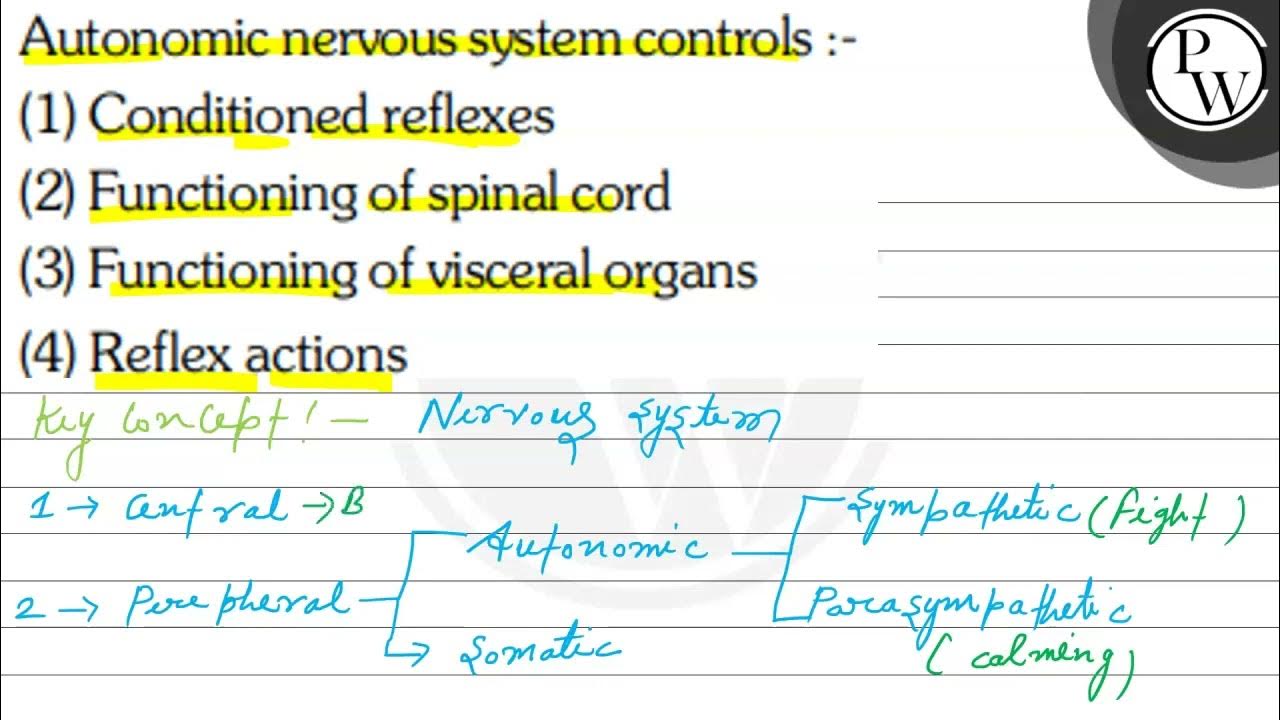 Autonomic nervous system controls :-
(1) Conditioned reflexes
(2) Functioning of spinal cord
(3) Functioning of visceral organs
(4) Reflex actions
PW
Key concept! — Nervous system
1 → Central → B
Autonomic
Sympathetic (fight)
2 → Perepheral
Parasympathetic
(calming)
→ Somatic